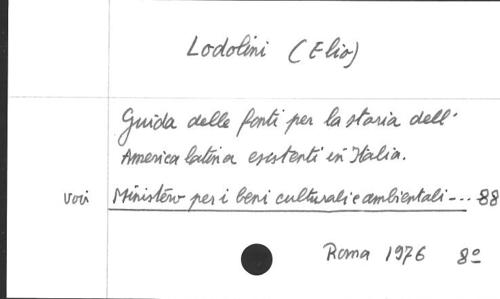 Lodolini (Elio)
Guida delle fonti per la storia dell'
America latina esistenti in Italia.
voci Ministero per i beni culturali e ambientali --- 88
Roma 1976 8º